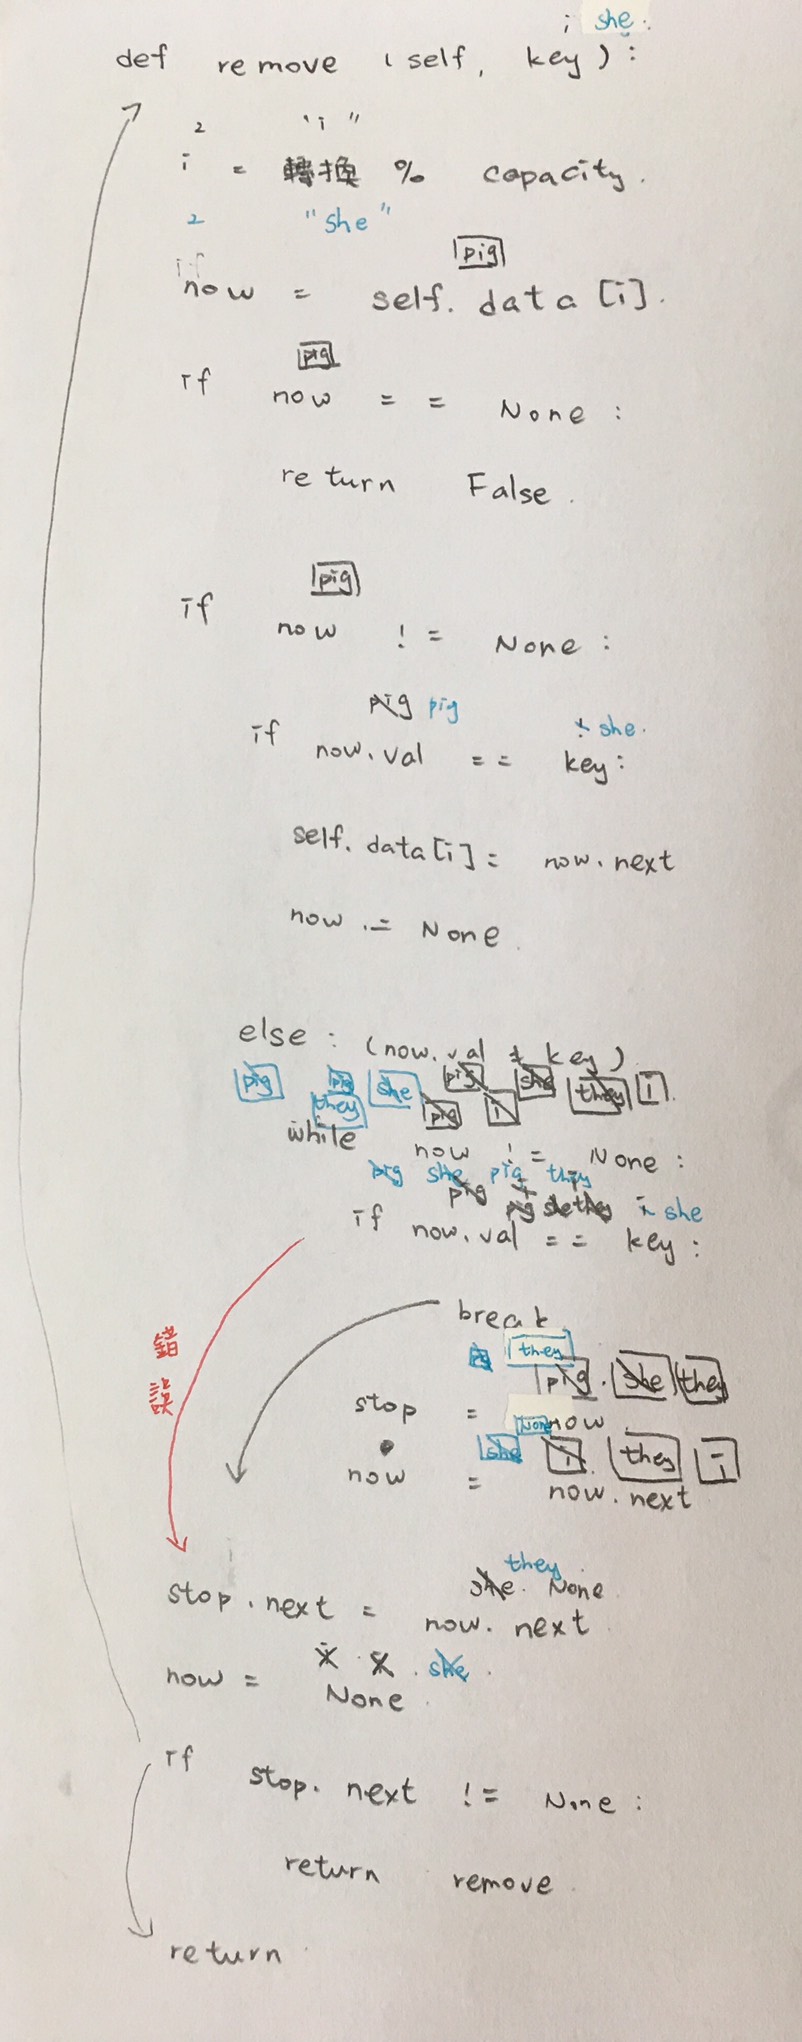 i she.
def remove (self, key):
2 "i"
i = 轉換 % capacity.
2 "she"
pig
if
now = self.data[i].
pig
if now == None:
return False.
pig
if now != None:
pig pig i she.
if now.val == key:
self.data[i] = now.next
now = None.
else: (now.val ≠ key)
pig pig she pig she they i
they pig i
while now != None:
pig she pig they
pig pig she they i she
if now.val == key:
break
they
pig. she they
stop = now.
None
she i. they i
now = now.next
錯誤
they
she. None
stop.next = now.next
she.
now = None.
if stop.next != None:
return remove.
return